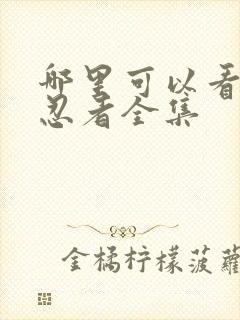 哪里可以看
忍者全集
金橘柠檬菠蘿